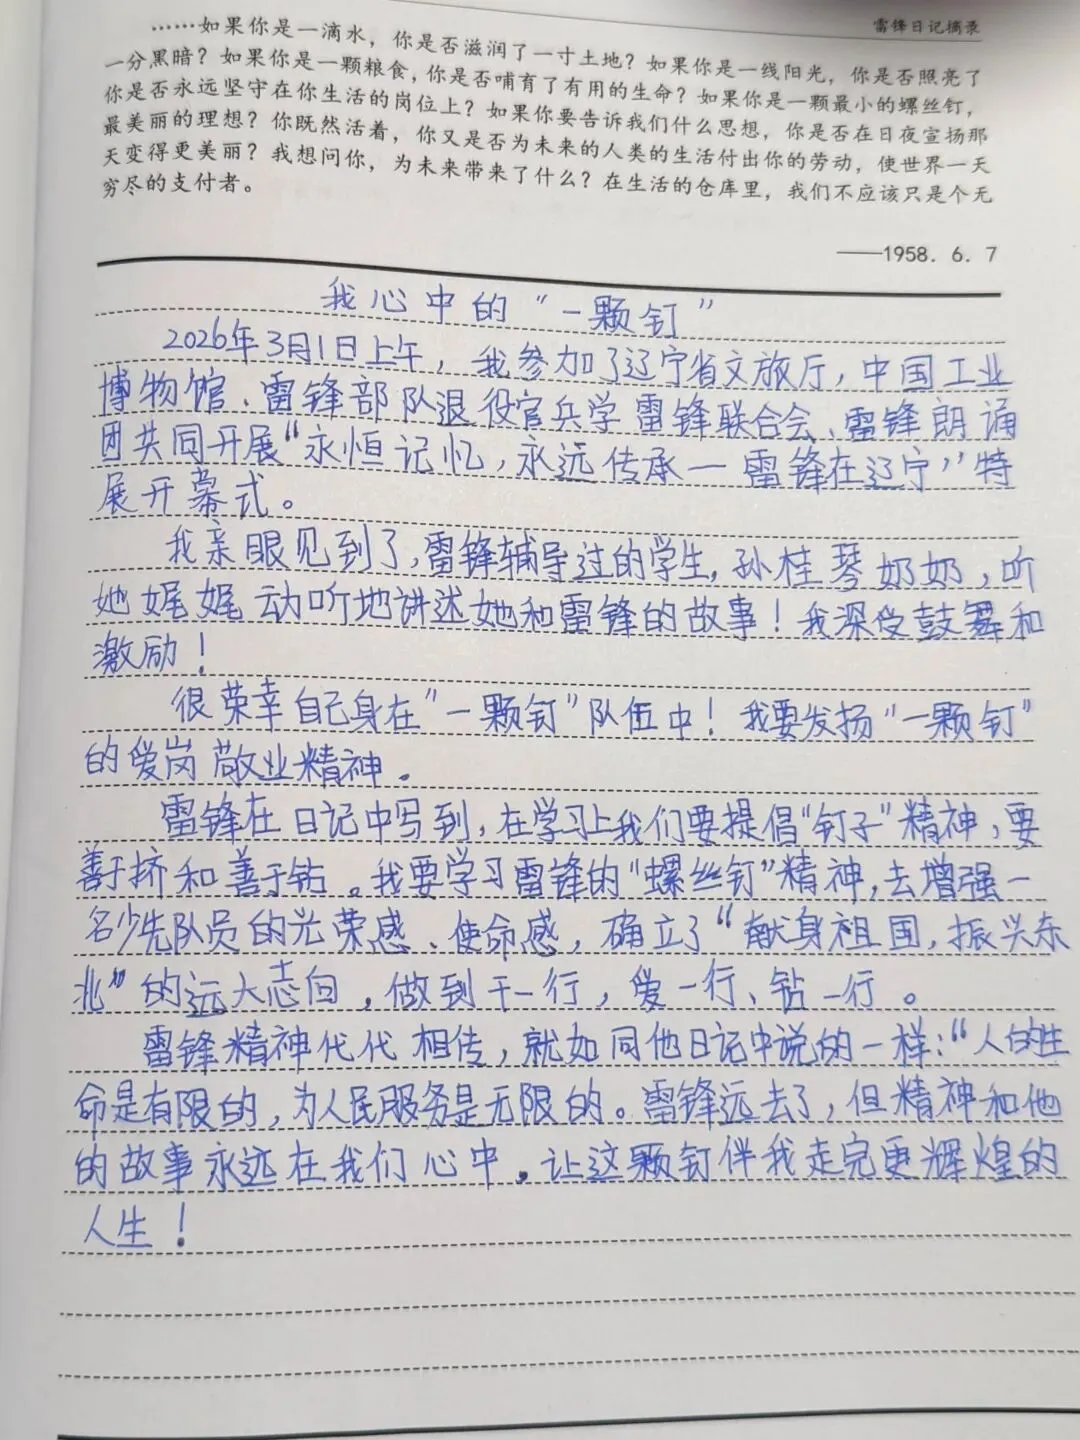 雷锋日记摘录
……如果你是一滴水，你是否滋润了一寸土地？如果你是一线阳光，你是否照亮了
一分黑暗？如果你是一颗粮食，你是否哺育了有用的生命？如果你是一颗最小的螺丝钉，
你是否永远坚守在你生活的岗位上？如果你要告诉我们什么思想，你是否在日夜宣扬那
最美丽的理想？你既然活着，你又是否为未来的人类的生活付出你的劳动，使世界一天
天变得更美丽？我想问你，为未来带来了什么？在生活的仓库里，我们不应该只是个无
穷尽的支付者。
——1958. 6. 7
我心中的“一颗钉”
2026年3月1日上午，我参加了辽宁省文旅厅，中国工业
博物馆、雷锋部队退役官兵学雷锋联合会、雷锋朗诵
团共同开展“永恒记忆，永远传承—雷锋在辽宁”特
展开幕式。
我亲眼见到了，雷锋辅导过的学生，孙桂琴奶奶，听
她娓娓动听地讲述她和雷锋的故事！我深受鼓舞和
激励！
很荣幸自己身在“一颗钉”队伍中！我要发扬“一颗钉”
的爱岗敬业精神。
雷锋在日记中写到，在学习上我们要提倡“钉子”精神，要
善于挤和善于钻。我要学习雷锋的“螺丝钉”精神，去增强一
名少先队员的光荣感、使命感，确立了“献身祖国，振兴东
北”的远大志向，做到干一行，爱一行、钻一行。
雷锋精神代代相传，就如同他日记中说的一样：“人的生
命是有限的，为人民服务是无限的。雷锋远去了，但精神和他
的故事永远在我们心中，让这颗钉伴我走完更辉煌的
人生！